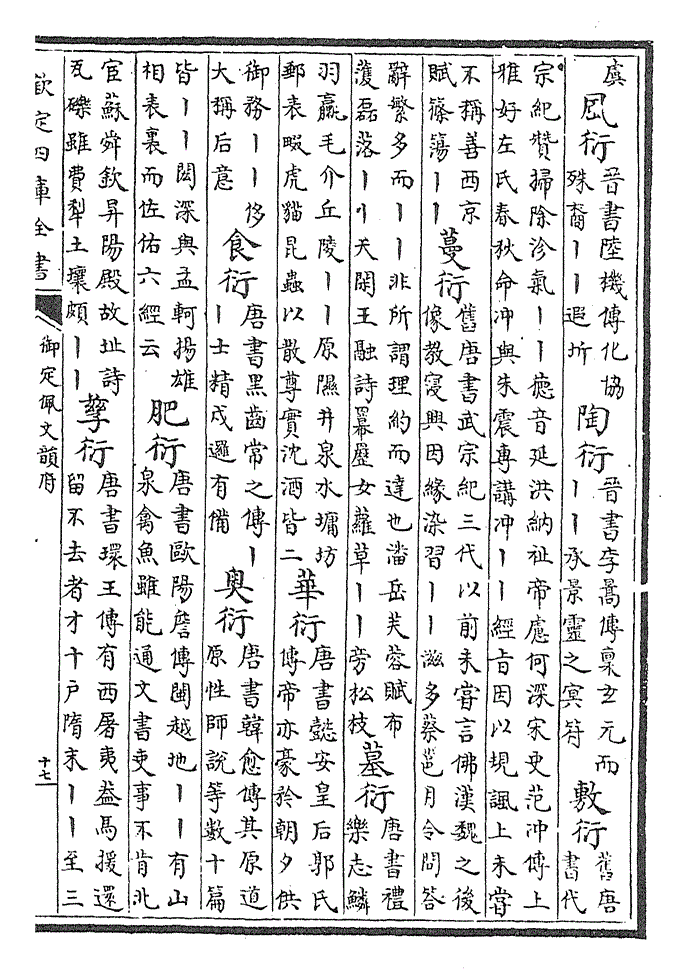 虞
風衍
晉書陸機傳化協
殊裔丨丨遐圻
陶衍
晉書李暠傳稟玄元而
丨丨承景靈之冥符
敷衍
舊唐
書代
宗紀贊掃除沴氣丨丨德音延洪納祉帝應何深宋史范沖傳上
雅好左氏春秋命沖與朱震專講沖丨丨經旨因以規諷上未嘗
不稱善西京
賦篠簜丨丨
蔓衍
舊唐書武宗紀三代以前未嘗言佛漢魏之後
像教寖興因緣染習丨丨滋多蔡邕月令問答
辭繁多而丨丨非所謂理約而達也潘岳芙蓉賦布
濩磊落丨刂天閑王融詩羃䍥女蘿草丨丨旁松枝
墓衍
唐書禮
樂志鱗
羽臝毛介丘陵丨丨原隰井泉水墉坊
郵表畷虎貓昆蟲以散尊實沈酒皆二
華衍
唐書懿安皇后郭氏
傳帝亦豪於朝夕供
御務丨丨侈
大稱后意
食衍
唐書黑齒常之傳丨
丨士精戍邏有備
奧衍
唐書韓愈傳其原道
原性師說等數十篇
皆丨丨閎深與孟軻揚雄
相表裏而佐佑六經云
肥衍
唐書歐陽詹傳閩越地丨丨有山
泉禽魚雖能通文書吏事不肯北
宦蘇舜欽昇陽殿故址詩
瓦礫雖費犁土壤頗丨丨
孳衍
唐書環王傳有西屠夷蓋馬援還
留不去者才十戶隋末丨丨至三
欽定四庫全書
御定佩文韻府
十七